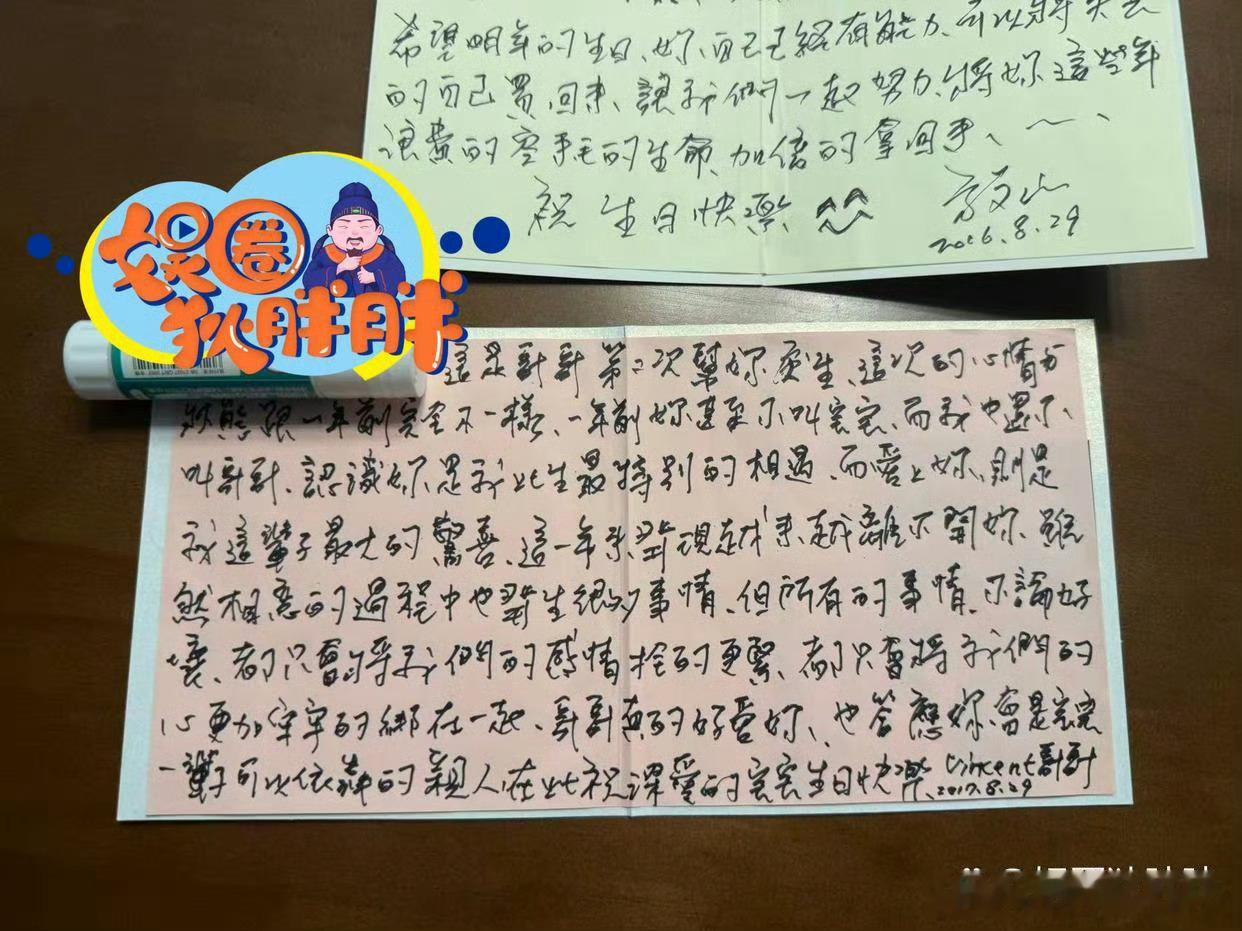 希望明年的生日、妳、自己已經有能力、可以將失去
的自己買回來、讓我們一起努力、將妳這些年
浪費的空白的生命、加倍的拿回來、
祝生日快樂
2016.8.29
娱圈
狄胖胖
這是哥哥第2次幫妳慶生、這次的心情與
狀態跟一年前完全不一樣、一年前妳甚至不叫宝宝、而我也還不
叫哥哥、認識妳是我此生最特別的相遇、而愛上妳、則是
我這輩子最大的驚喜、這一年來發現越來越離不開妳、雖
然相戀的過程中也發生很多事情、但所有的事情、不論好
壞、都只會將我們的感情拴的更緊、都只會將我們的
心更加牢牢的綁在一起、哥哥真的好愛妳、也答應妳、會是宝宝
一輩子可以依靠的親人在此祝深愛的宝宝生日快樂、Vincent哥哥
2017.8.29